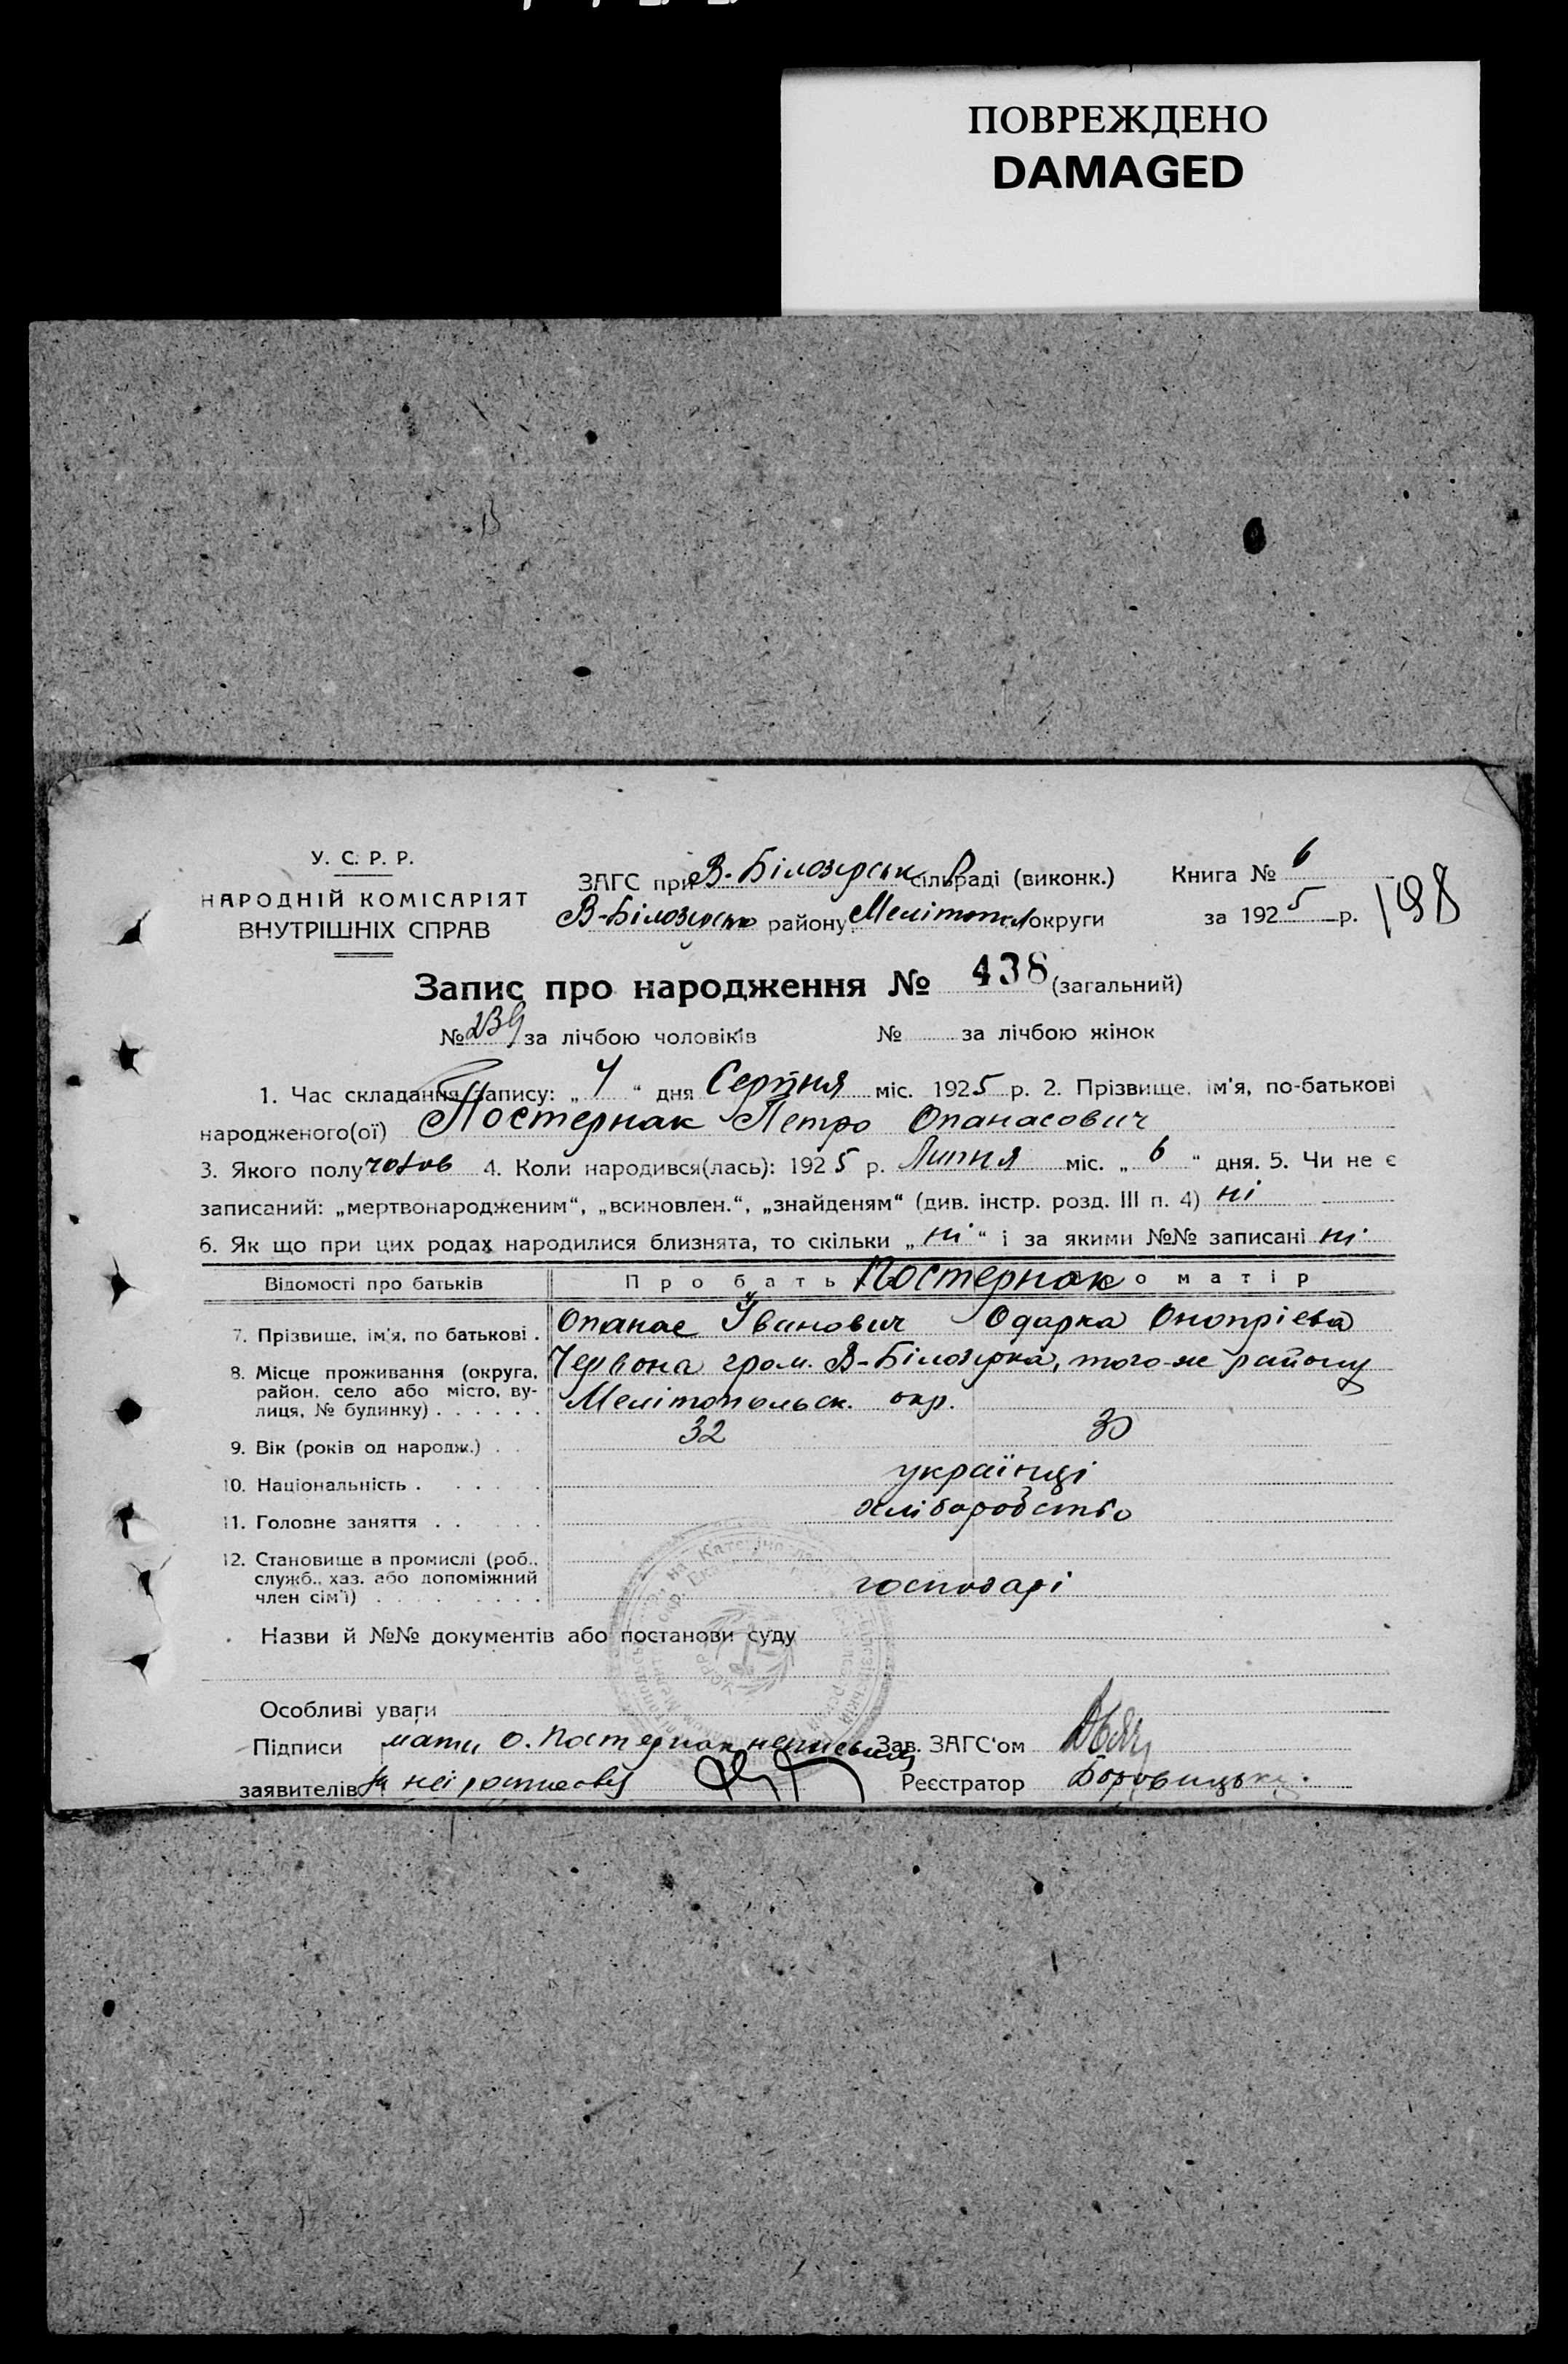 ПОВРЕЖДЕНО
DAMAGED
У. С. Р. Р.
НАРОДНІЙ КОМІСАРІЯТ
ВНУТРІШНІХ СПРАВ
ЗАГС при В-Білозерськ. сільраді (виконк.)
В-Білозерськ району Мелітопол округи
Книга № 6
за 1925 р.
198
Запис про народження № 438 (загальний)
№ 239 за лічбою чоловіків № за лічбою жінок
1. Час складання запису: „ 4 “ дня Серпня міс. 1925 р. 2. Прізвище, ім'я, по-батькові
народженого(ої) Постернак Петро Опанасович
3. Якого полу чолов 4. Коли народився(лась): 1925 р. Липня міс. „ 6 “ дня. 5. Чи не є
записаний: „мертвонародженим“, „всиновлен.“, „знайденям“ (див. інстр. розд. III п. 4) ні
6. Як що при цих родах народилися близнята, то скільки „ ні “ і за якими №№ записані ні
Відомості про батьків Про бать Постернак о матір
7. Прізвище, ім'я, по батькові . Опанас Іванович Одарка Онопрієва
8. Місце проживання (округа, район, село або місто, вулиця, № будинку) . . . . . . Червона гром. В-Білозірка, того-же району
Мелітопольск. окр.
9. Вік (років од народж.) . . 32 30
10. Національність . . . . . . українці
11. Головне заняття . . . . . хліборобство
12. Становище в промислі (роб., служб., хаз. або допоміжний член сім'ї) . . . . . . . . господарі
Назви й №№ документів або постанови суду
Особливі уваги
Підписи мати О. Постернак неписьмен Зав. ЗАГС'ом
заявителів за неї росписався Реєстратор Боровицьк